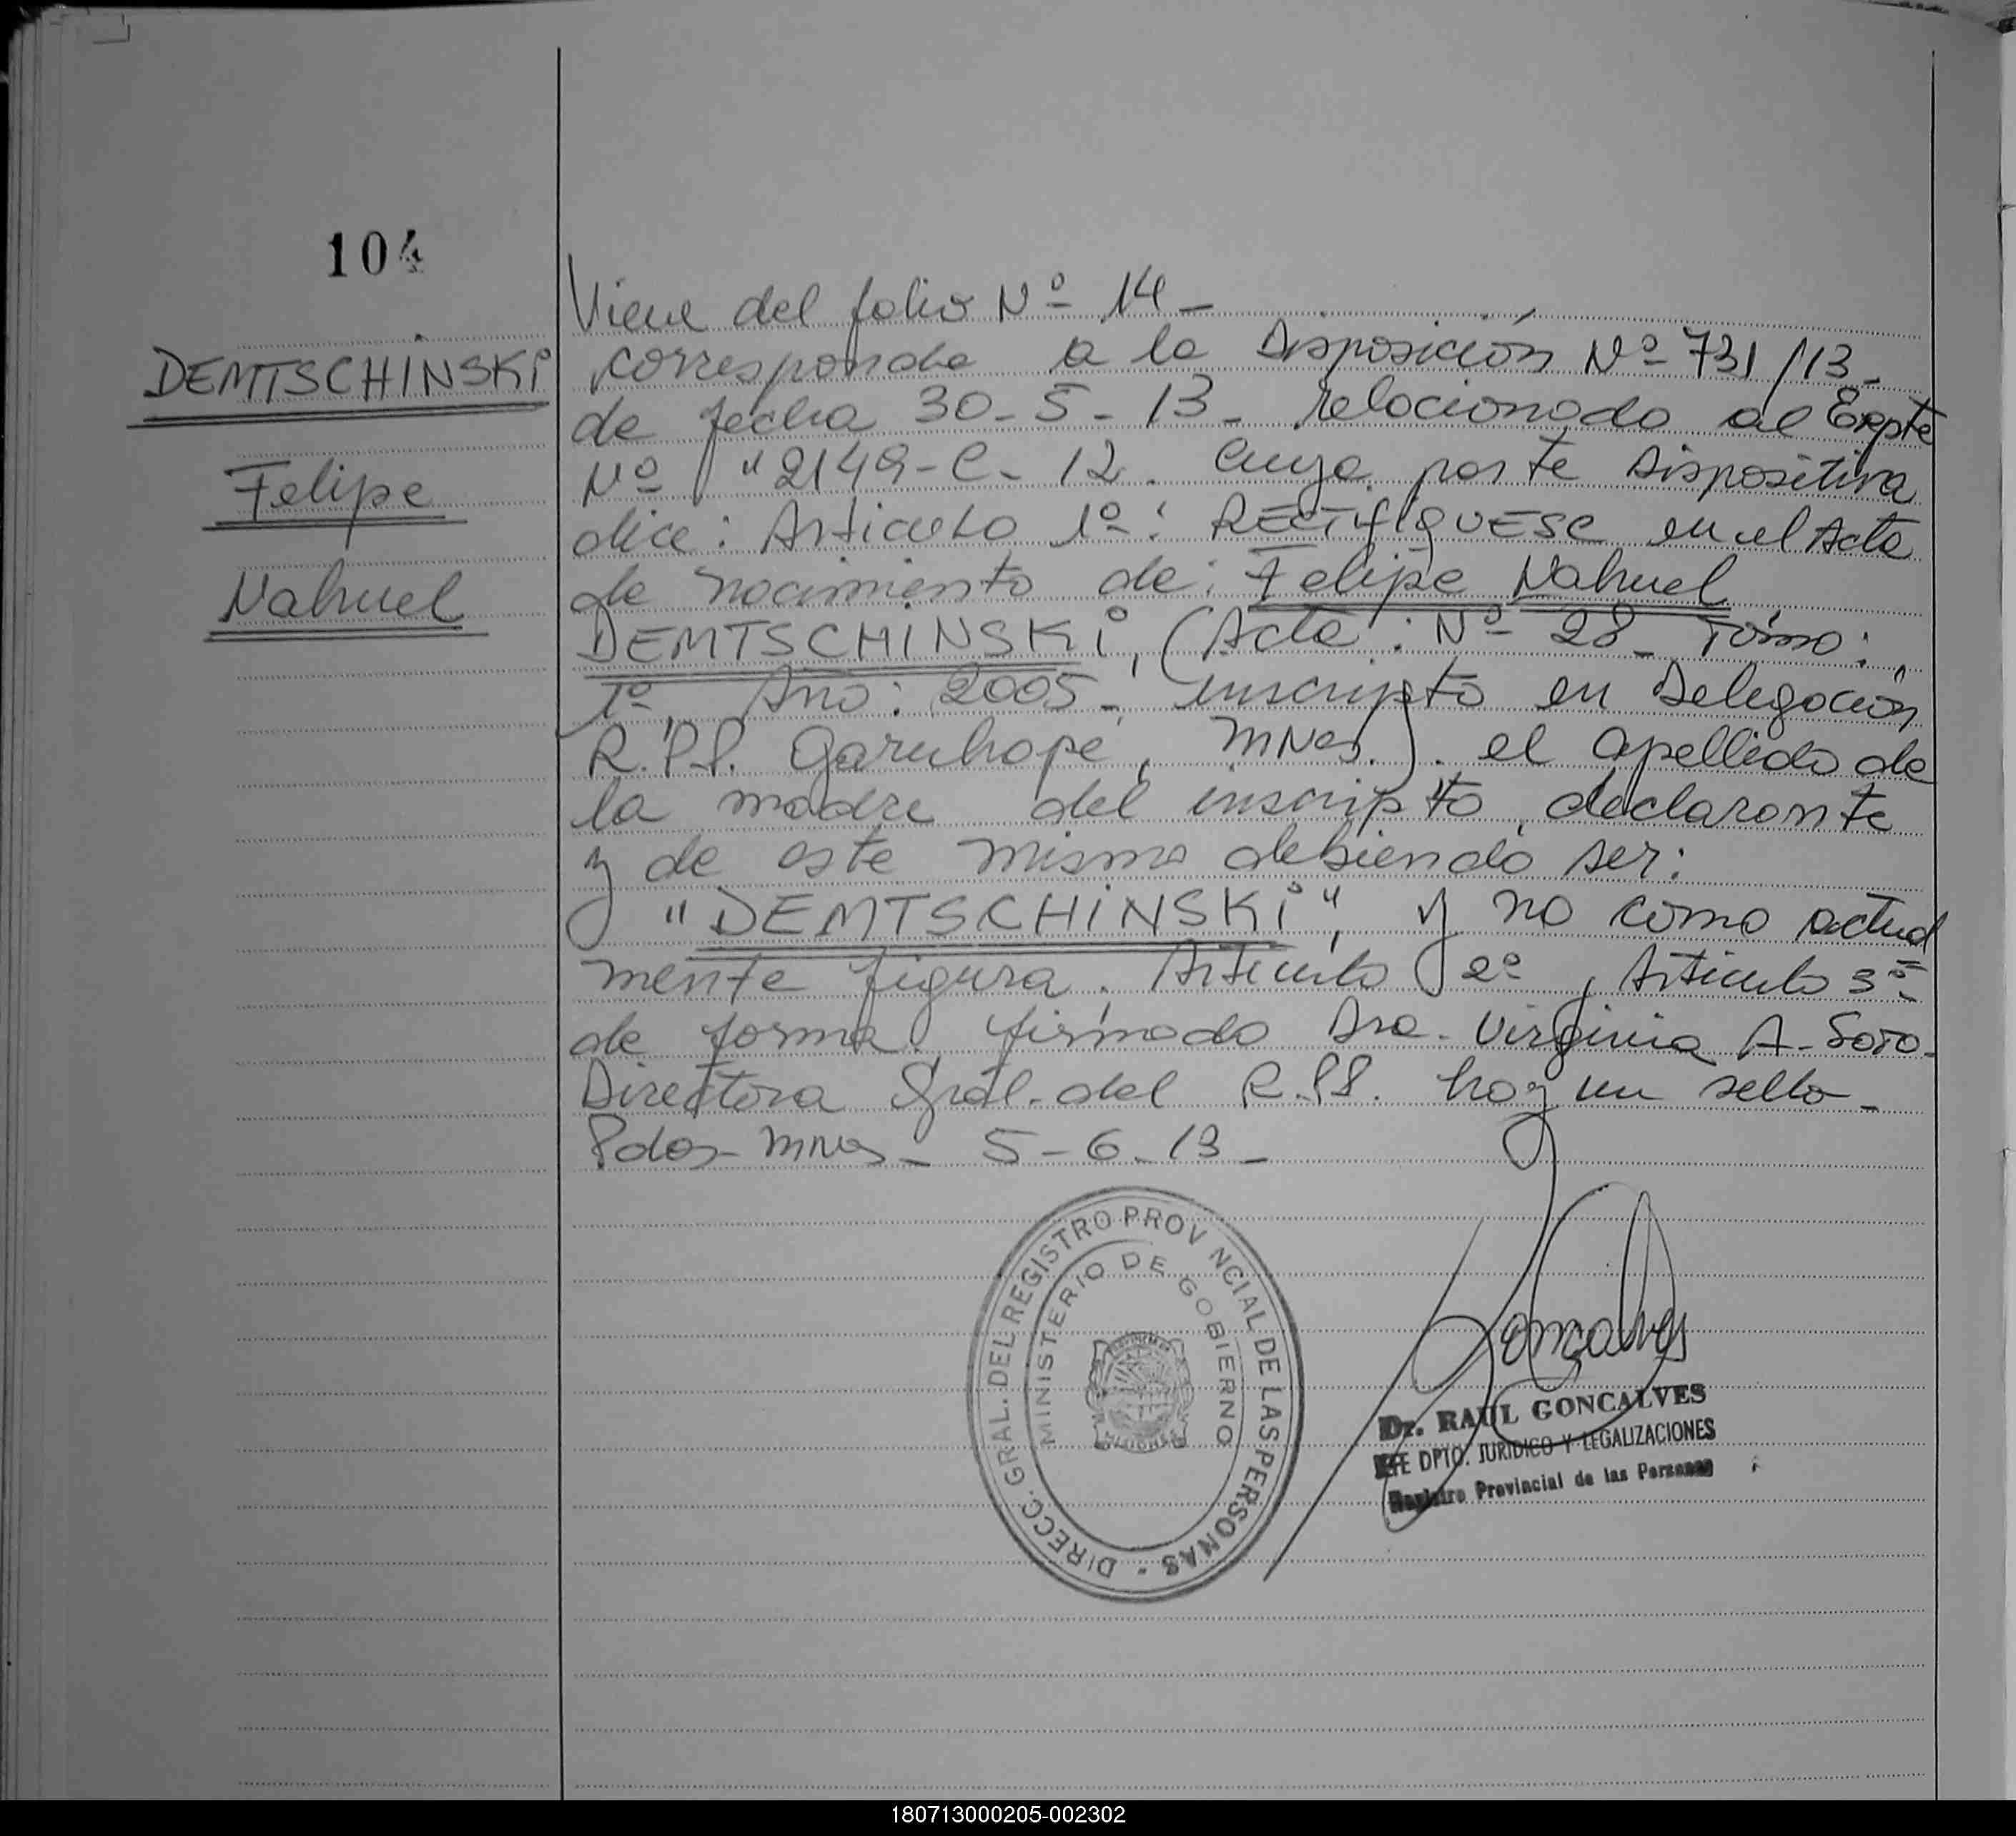 104
DEMTSCHINSKi
Felipe
Nahuel
Viene del folio Nº 14 -
corresponde a la Disposición Nº 731/13 -
de fecha 30-5-13- relacionado al Expte
Nº "2149-C-12. cuya parte Dispositiva
dice: Articulo 1º: RECTIFIQUESE en el Acta
de nacimiento de: Felipe Nahuel
DEMTSCHINSKi, (Acta: Nº 28- Tomo:
1º Año: 2005- inscripto en Delegación
R.P.P. Garuhape, MNes). el apellido de
la madre del inscripto, declarante
y de este mismo debiendo ser:
"DEMTSCHINSKi", y no como actual
mente figura. Articulo 2º, Articulo 3º
de forma. firmado Dra. Virginia A. Soto.
Directora Gral. del R.PP. hay un sello -
Pdas- MNes - 5-6-13 -
DIRECC. GRAL. DEL REGISTRO PROVINCIAL DE LAS PERSONAS -
MINISTERIO DE GOBIERNO
MISIONES
Goncalves
Dr. RAUL GONCALVES
JEFE DPTO. JURIDICO Y LEGALIZACIONES
Registro Provincial de las Personas
180713000205-002302